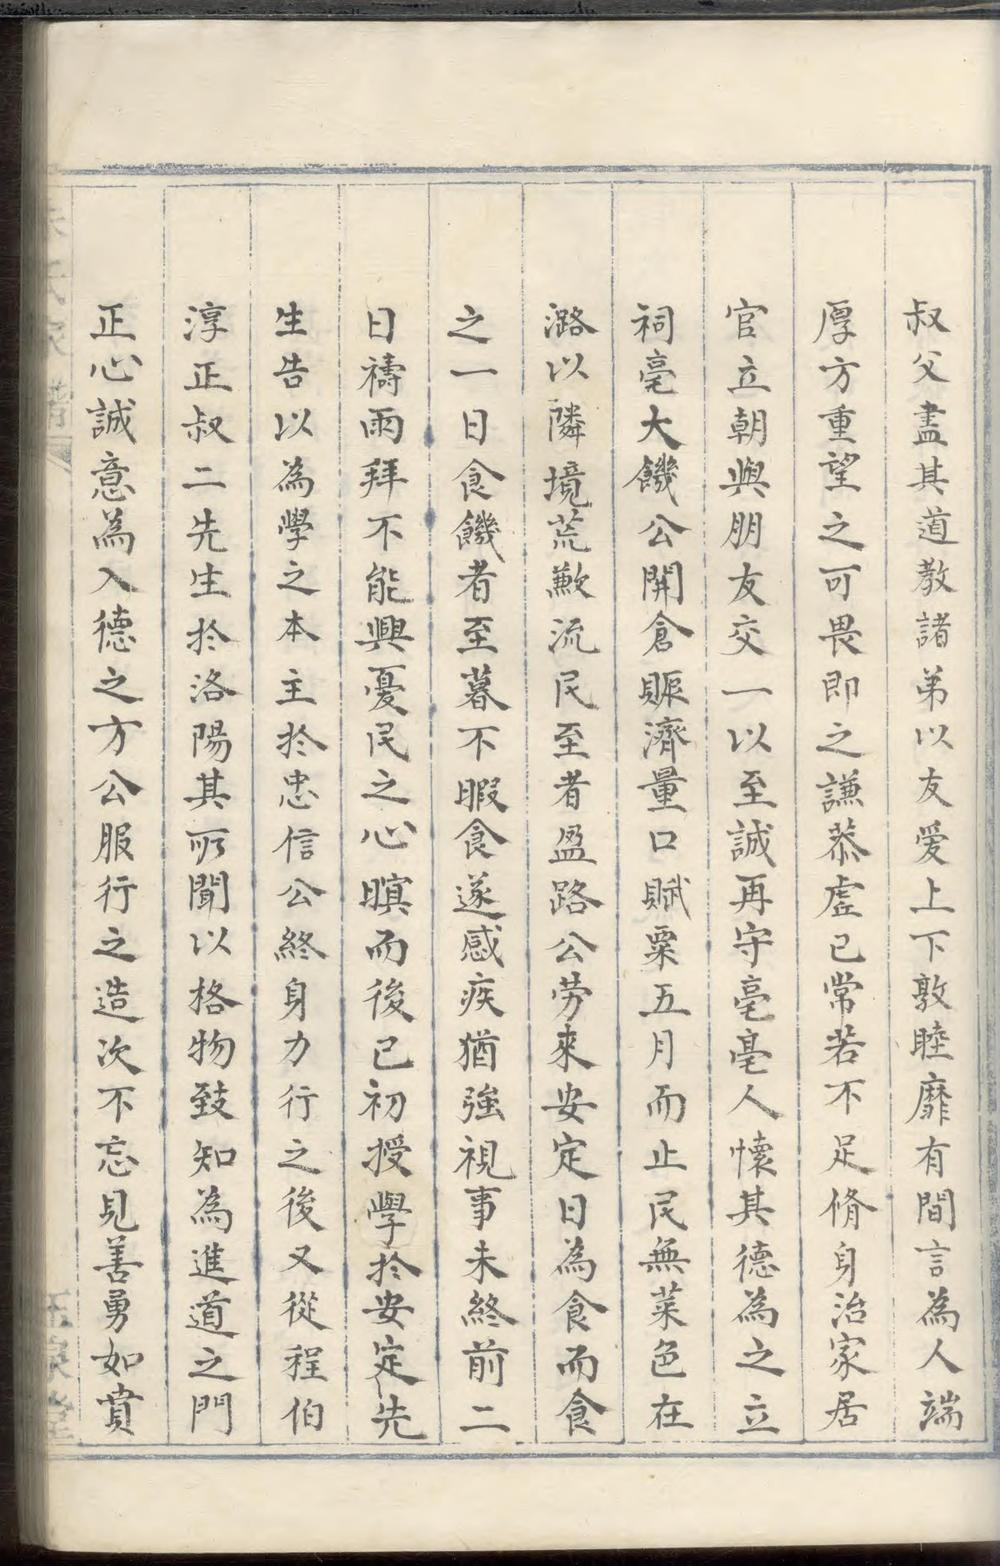 叔父盡其道教諸弟以友爱上下敦睦靡有間言為人端
厚方重望之可畏即之謙恭虛已常若不足脩身治家居
官立朝與朋友交一以至誠再守亳亳人懷其德為之立
祠亳大饑公開倉賑濟量口賦粟五月而止民無菜色在
潞以隣境荒歉流民至者盈路公劳來安定日為食而食
之一日食饑者至暮不暇食遂感疾猶強視事未終前二
日禱雨拜不能興憂民之心瞑而後已初授學於安定先
生告以為學之本主於忠信公終身力行之後又從程伯
淳正叔二先生於洛陽其所聞以格物致知為進道之門
正心誠意為入德之方公服行之造次不忘見善勇如賁